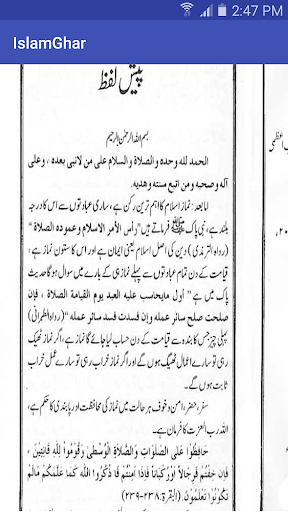 2:47 PM
IslamGhar
پیش لفظ
بسم اللہ الرحمٰن الرحیم
الحمد لله وحده والصلاة والسلام على من لانبى بعده ، وعلى
آله وصحبه ومن اتبع سنته وهديه.
امابعد: نماز اسلام کا اہم ترین رکن ہے، ساری عبادتوں سے اس کا درجہ
بلند ہے، نبی پاک ﷺ فرماتے ہیں "رأس الأمر الاسلام وعموده الصلاة "
(رواہ الترمذی) دین کی اصل اسلام یعنی ایمان ہے اور اس کا ستون نماز ہے،
قیامت کے دن تمام عبادتوں سے پہلے نماز ہی کے بارے میں سوال ہوگا حدیث
پاک میں ہے " أول مايحاسب عليه العبد يوم القيامة الصلاة ، فإن
صلحت صلح سائر عمله وإن فسدت فسد سائر عمله "(رواہ الطبرانی)
پہلی چیز جس کا بندہ سے قیامت کے دن حساب لیا جائے گا نماز ہے، اگر نماز ٹھیک
رہی تو سارے اعمال ٹھیک ہوں گے اور اگر نماز خراب رہی تو سارے عمل خراب
ثابت ہوں گے۔
سفر، حضر، امن و خوف ہر حالت میں نماز کی محافظت اور پابندی کا حکم ہے،
اللہ رب العزت کا فرمان ہے۔
حَافِظُوْا عَلَى الصَّلَوَاتِ وَالصَّلَاةِ الْوُسْطٰى وَقُوْمُوْا لِلّٰهِ قَانِتِيْنَ ،
فَإِن خِفْتُمْ فَرِجَالًا أَوْ رُكْبَانًا فَإِذَا أَمِنْتُمْ فَاذْكُرُوْا اللّٰهَ كَمَا عَلَّمَكُمْ مَالَمْ
تَكُوْنُوْا تَعْلَمُوْنَ. (البقرة:۲۳۸-۲۳۹)